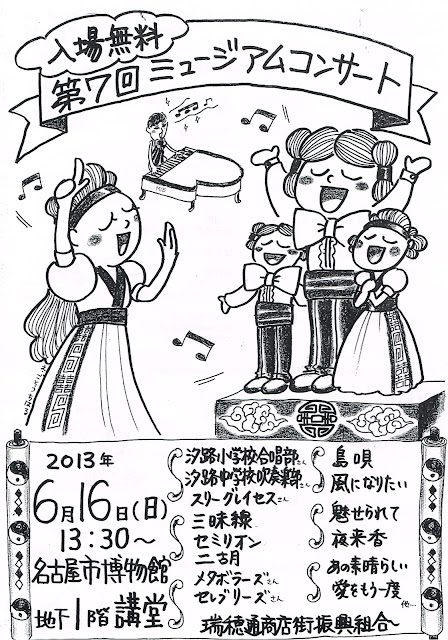 入場無料
第7回 ミュージアムコンサート
2013年
6月16日(日)
13:30～
名古屋市博物館
地下1階 講堂
汐路小学校合唱部さん
汐路中学校吹奏楽部さん
スリーグレイセスさん
三味線
セミリオン
二古月
メタボラーズさん
セレブリーズさん
島唄
風になりたい
魅せられて
夜来香
あの素晴らしい
愛をもう一度
他…
瑞穂通商店街振興組合～